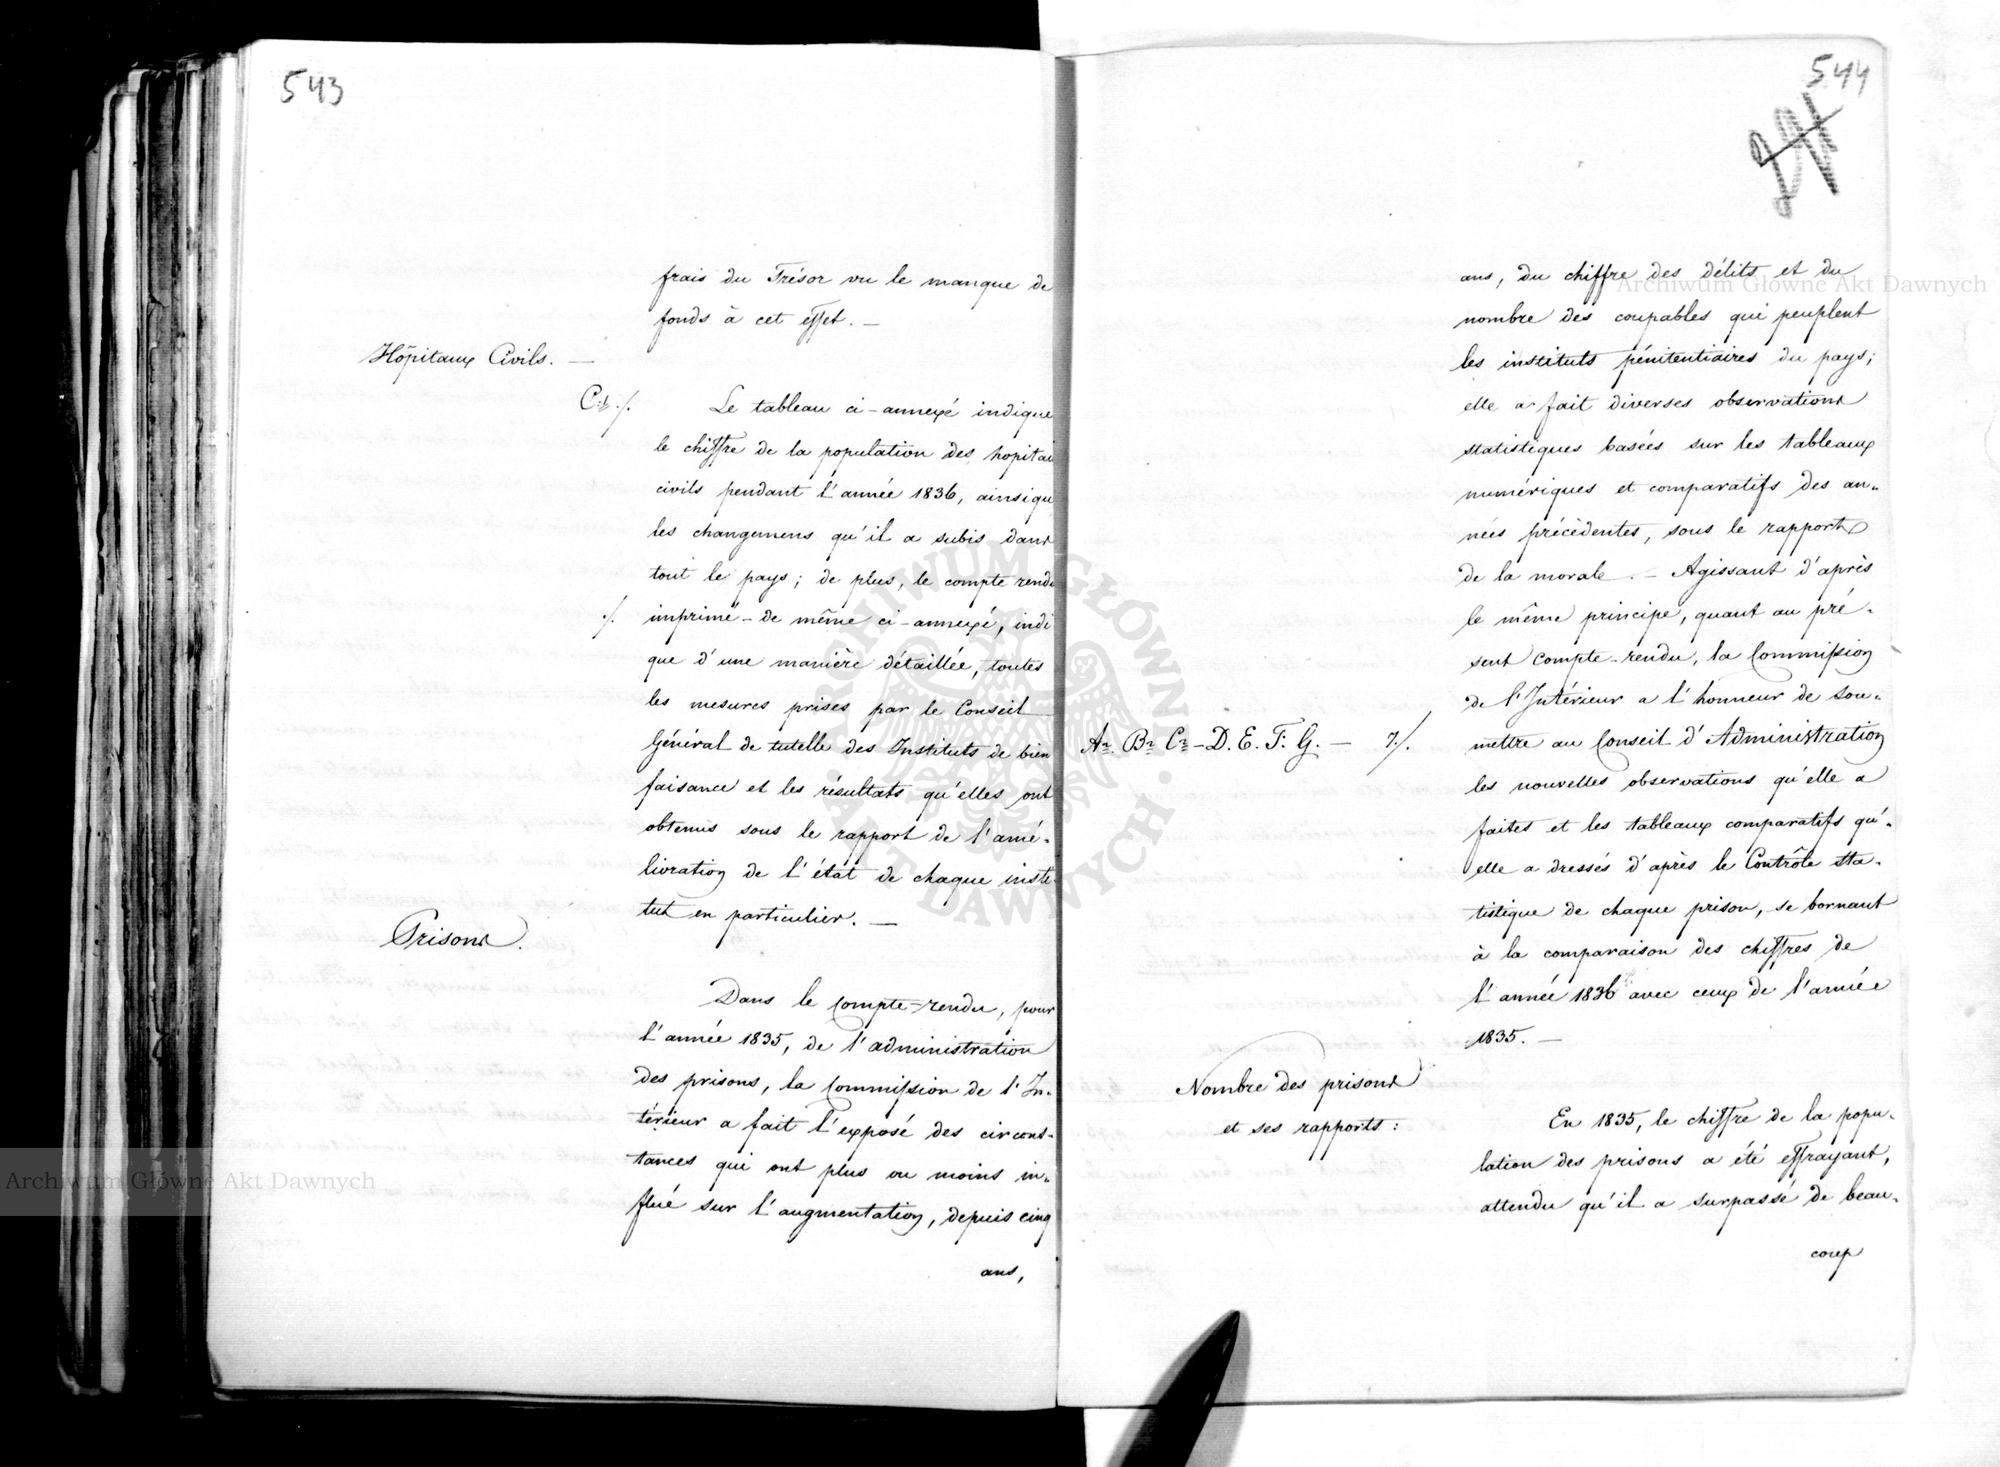 543
frais du Trésor vu le manque de
fonds à cet effet. —
Hôpitaux Civils. —
Le tableau ci-annexé indique
le chiffre de la population des hopitau
civils pendant l'année 1836, ainsi qu
les changemens qu'il a subis dans
tout le pays; de plus, le compte rendu
./. imprimé - de même ci-annexé, indi
que d'une manière détaillée, toutes
les mesures prises par le Conseil
Général de tutelle des Instituts de bien
faisance et les résultats qu'elles ont
obtenus sous le rapport de l'amé-
lioration de l'état de chaque insti
tut en particulier. —
Prisons.
Dans le compte-rendu, pour
l'année 1835, de l'administration
des prisons, la Commission de l'In-
térieur a fait l'exposé des circons-
tances qui ont plus ou moins in-
flué sur l'augmentation, depuis cinq
ans,
544
ans, du chiffre des délits et du
nombre des coupables qui peuplent
les instituts pénitentiaires du pays;
elle a fait diverses observations
statistiques basées sur les tableaux
numériques et comparatifs des an-
nées précédentes, sous le rapport
de la morale. — Agissant d'après
le même principe, quant au pré-
sent Compte-rendu, la Commission
de l'Intérieur a l'honneur de sou-
A. B. C. - D. E. F. G. — 7./. mettre au Conseil d'Administration
les nouvelles observations qu'elle a
faites et les tableaux comparatifs qu'-
elle a dressés d'après le Contrôle sta-
tistique de chaque prison, se bornant
à la comparaison des chiffres de
l'année 1836 avec ceux de l'année
1835. —
Nombre des prisons
et ses rapports:
En 1835, le chiffre de la popu-
lation des prisons a été effrayant,
attendu qu'il a surpassé de beau-
coup
Archiwum Główne Akt Dawnych
Archiwum Główne Akt Dawnych
ARCHIWUM GŁÓWNE AKT DAWNYCH